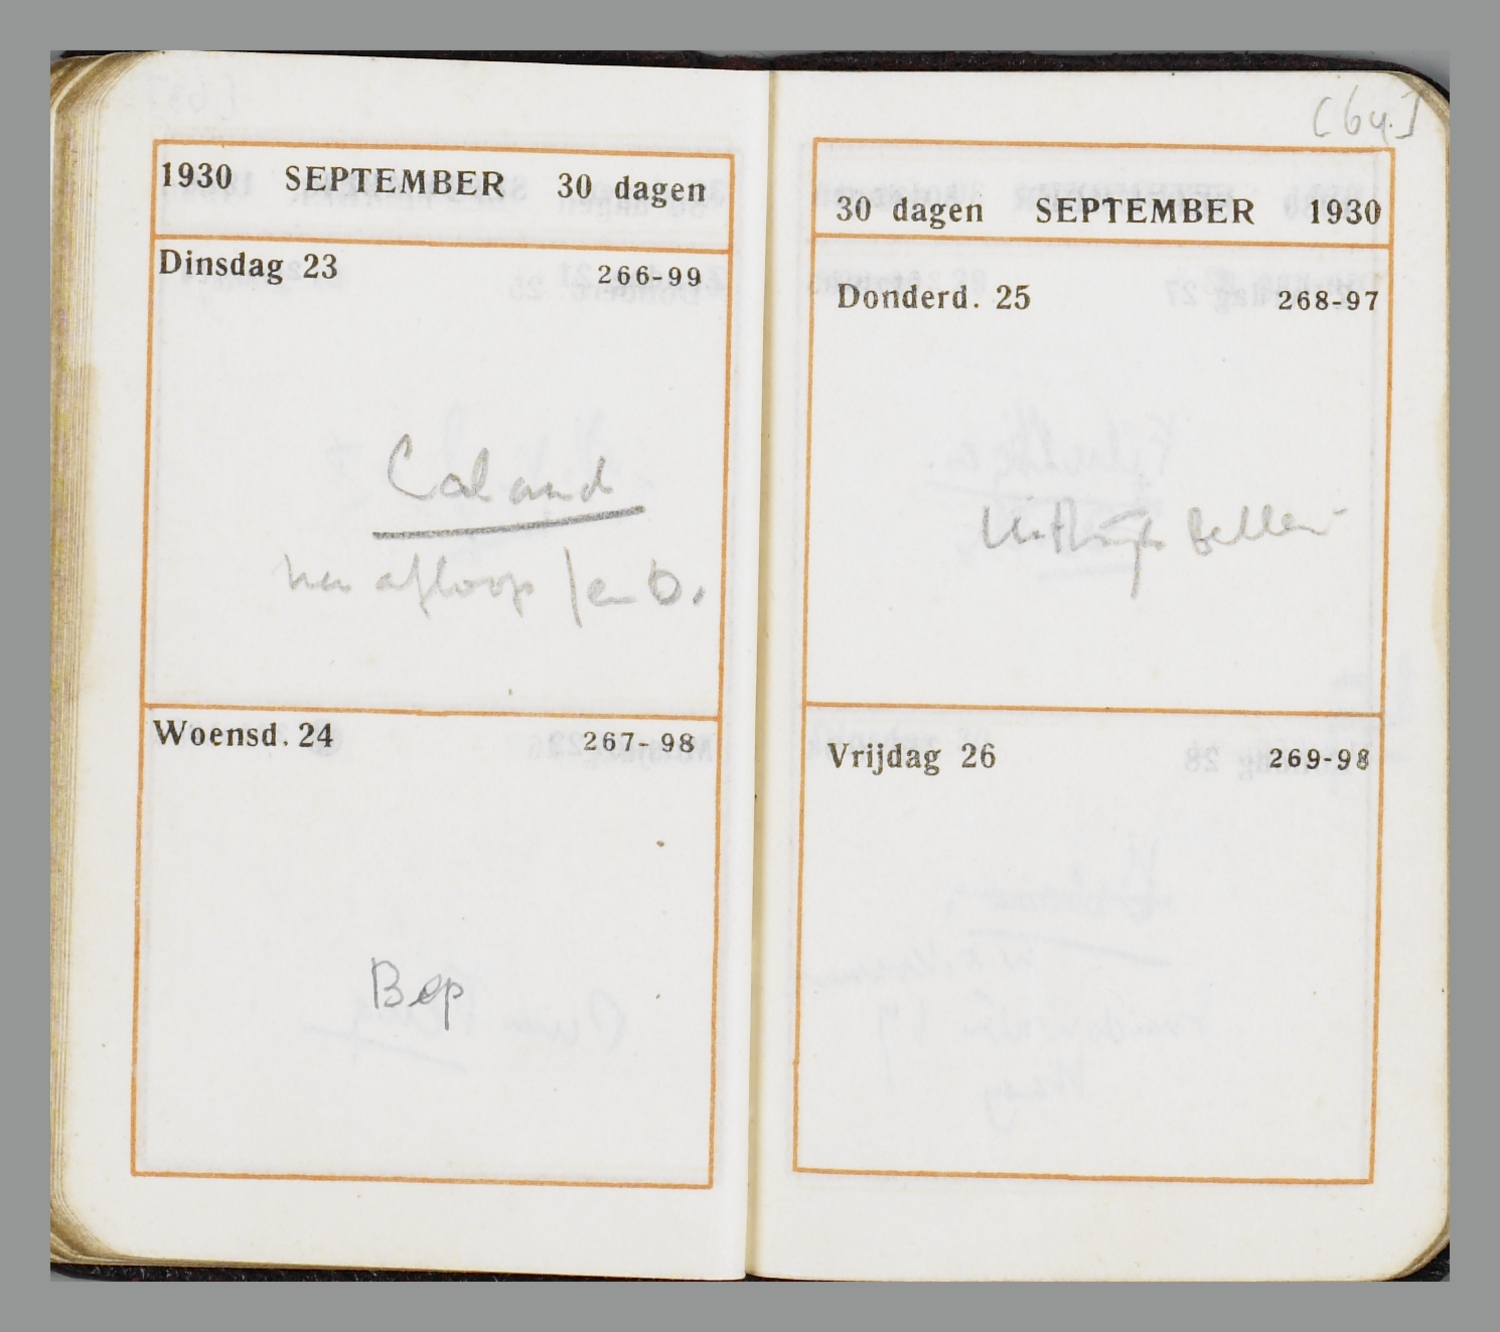 1930 SEPTEMBER 30 dagen
Dinsdag 23 266-99
Caland
na afloop
Woensd. 24 267-98
Bep
[64.]
30 dagen SEPTEMBER 1930
Donderd. 25 268-97
Vrijdag 26 269-98